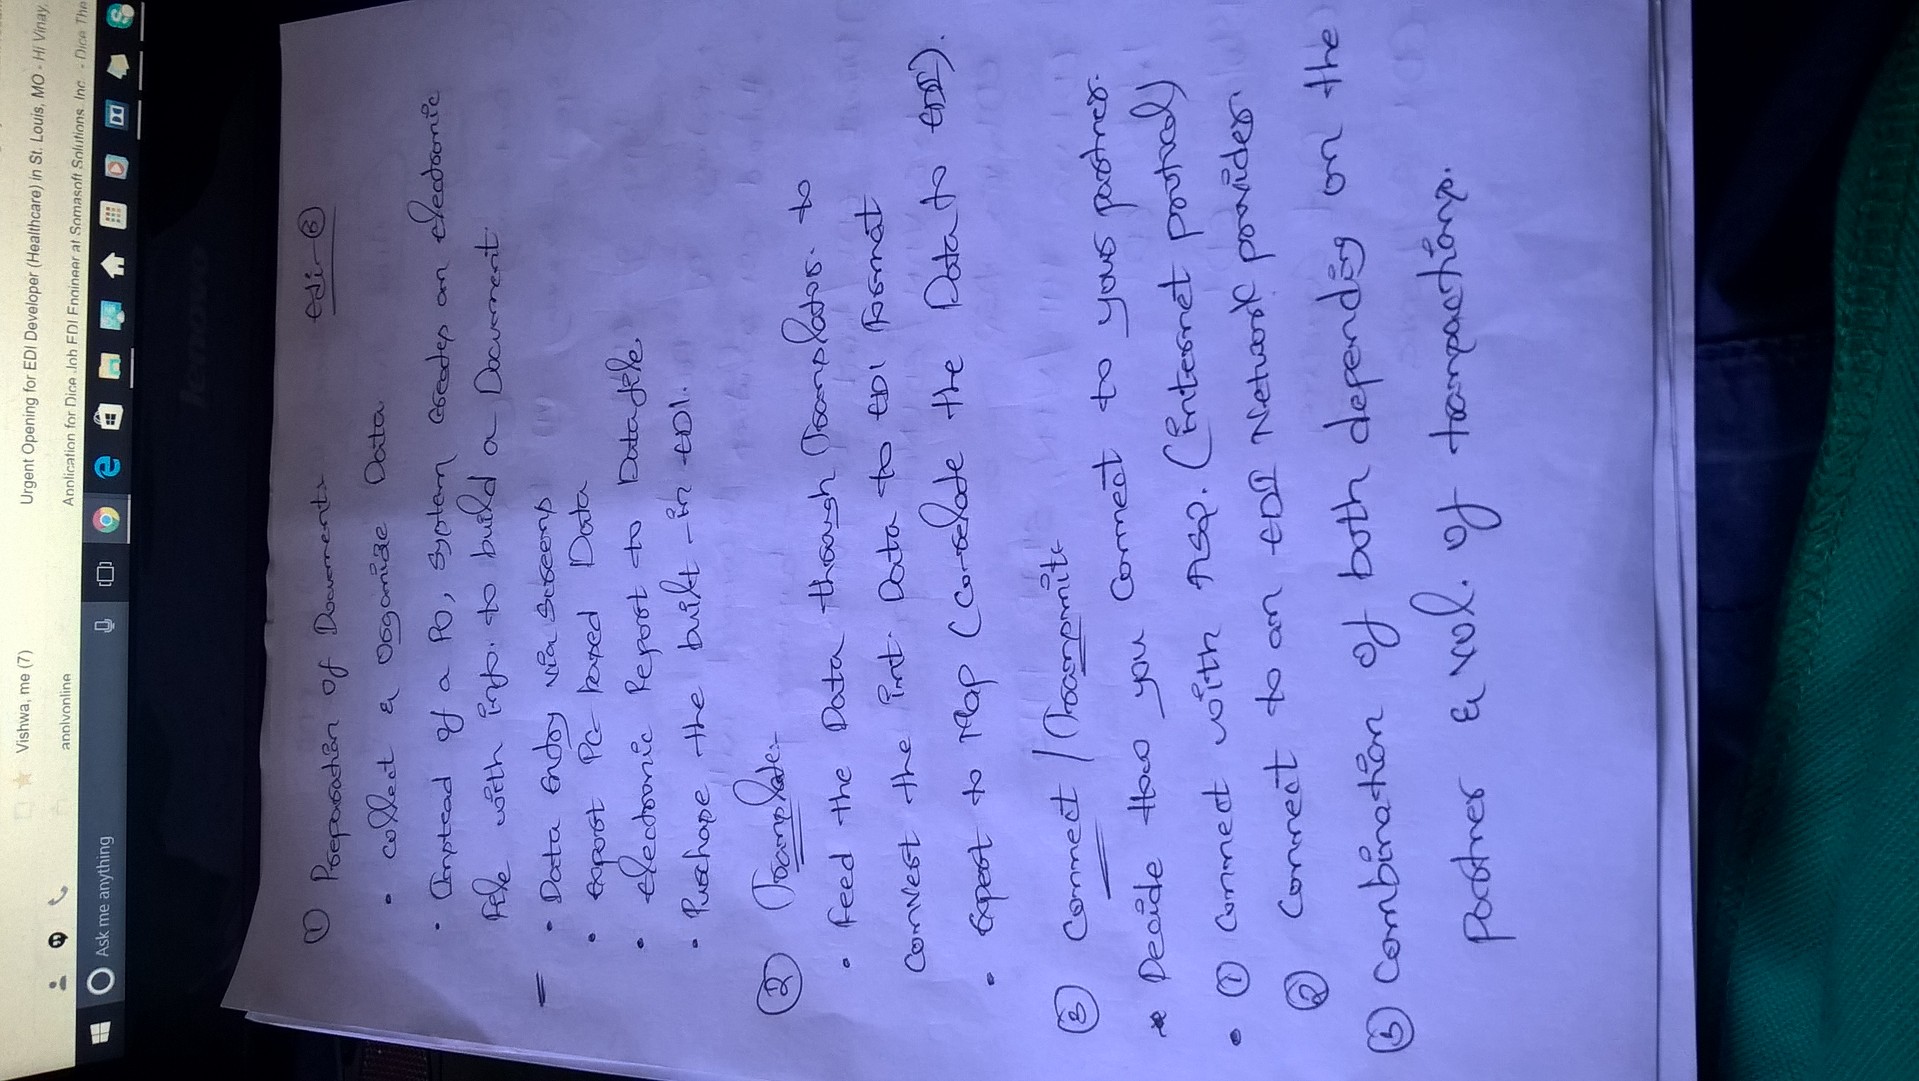 Vishwa, me (7)
Urgent Opening for EDI Developer (Healthcare) in St. Louis, MO - Hi Vinay,
applyonline
Application for Dice Job EDI Engineer at Somasoft Solutions, Inc. - Dice The
Ask me anything
lenovo
edi-6
① Preparation of Documents
• collect & Organize Data
• Instead of a PO, system creates an electronic
file with info. to build a Document.
= • Data Entry via screens
• export PC based Data
• electronic Report to Datafile
• Purchase the built-in EDI.
② Translate:-
• Feed the Data through Translator. to
Convert the int. Data to EDI Format
• Expert to Map (Correlate the Data to EDI).
③ Connect / Transmit:-
* Decide How you Connect to your partner.
• ① Connect with Asp. (Internet protocol)
② Connect to an EDI Network provider.
③ Combination of both depending on the
Partner & vol. of transactions.